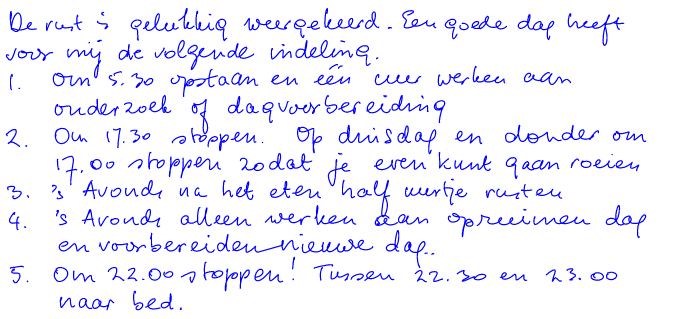 De rust is gelukkig weergekeerd. Een goede dag heeft
voor mij de volgende indeling.
1. Om 5.30 opstaan en één uur werken aan
onderzoek of dagvoorbereiding
2. Om 17.30 stoppen. Op dinsdag en donder om
17.00 stoppen zodat je even kunt gaan roeien
3. 's Avonds na het eten half uurtje rusten
4. 's Avonds alleen werken aan opruimen dag
en voorbereiden nieuwe dag..
5. Om 22.00 stoppen! Tussen 22.30 en 23.00
naar bed.